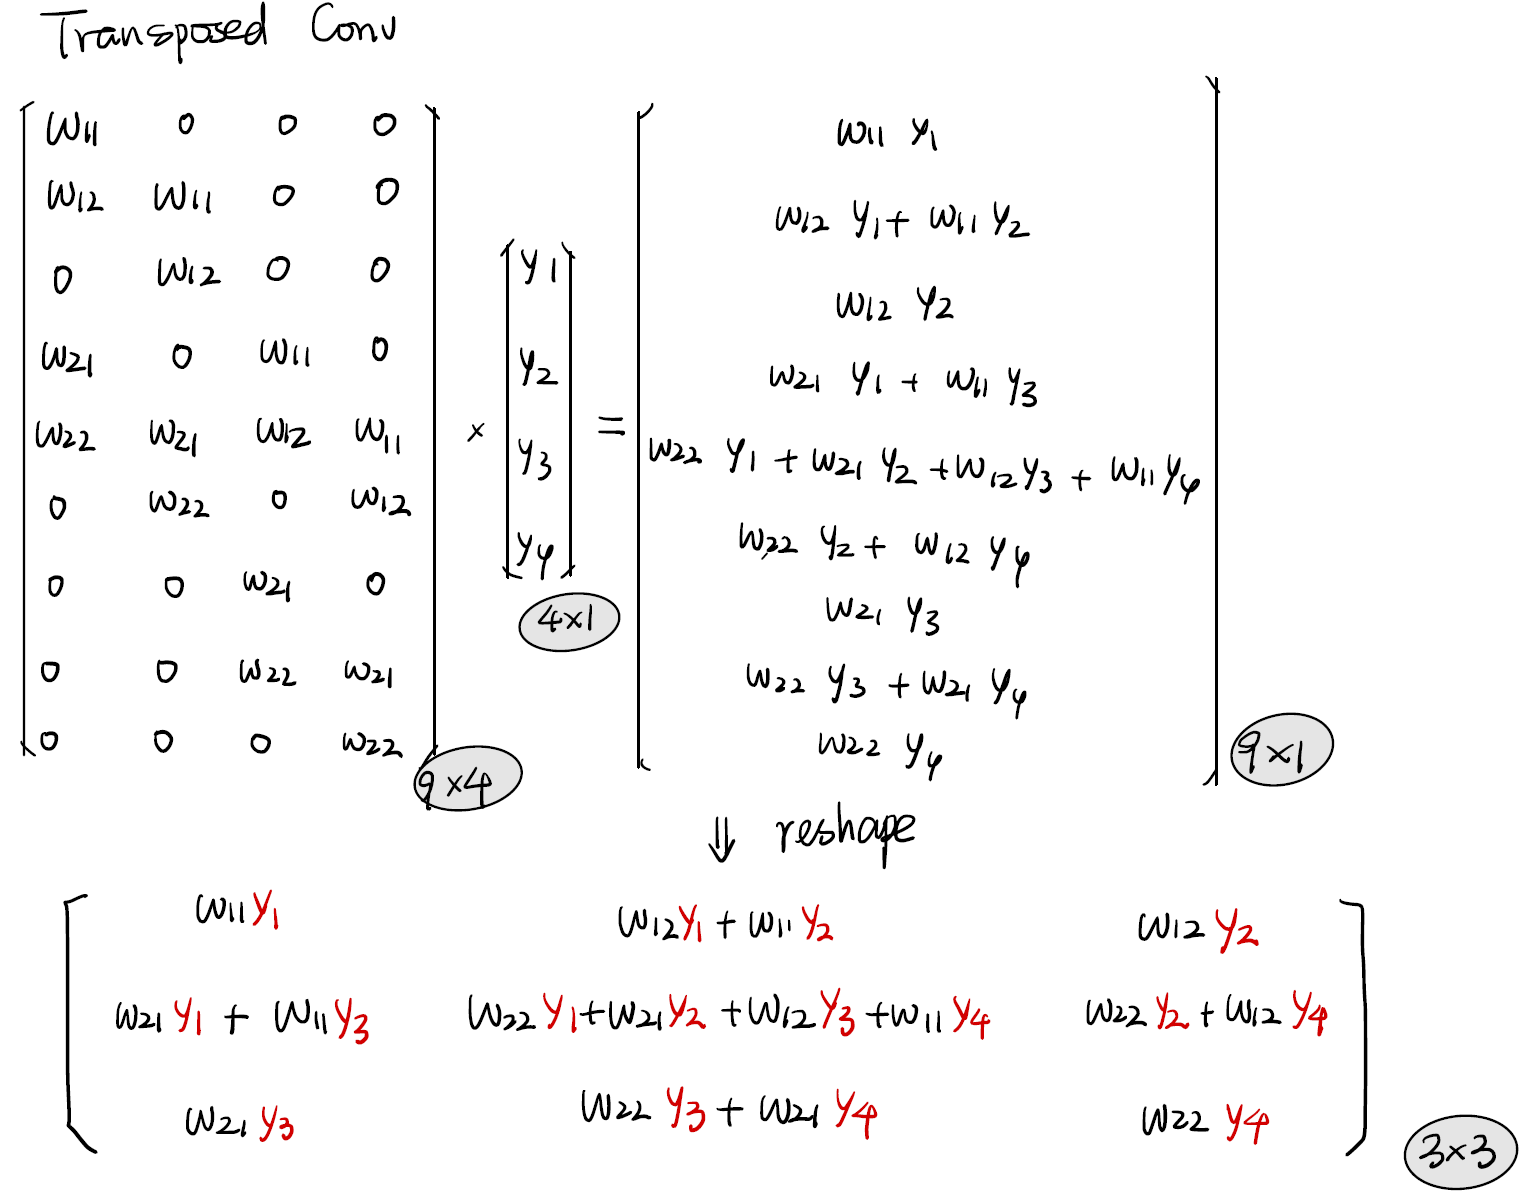 Transposed Conv
W11 0 0 0
W12 W11 0 0
0 W12 0 0
W21 0 W11 0
W22 W21 W12 W11
0 W22 0 W12
0 0 W21 0
0 0 W22 W21
0 0 0 W22
9×4
×
y1
y2
y3
y4
4×1
=
W11 y1
W12 y1 + W11 y2
W12 y2
W21 y1 + W11 y3
W22 y1 + W21 y2 + W12 y3 + W11 y4
W22 y2 + W12 y4
W21 y3
W22 y3 + W21 y4
W22 y4
9×1
⇓ reshape
W11 y1 W12 y1 + W11 y2 W12 y2
W21 y1 + W11 y3 W22 y1 + W21 y2 + W12 y3 + W11 y4 W22 y2 + W12 y4
W21 y3 W22 y3 + W21 y4 W22 y4
3×3